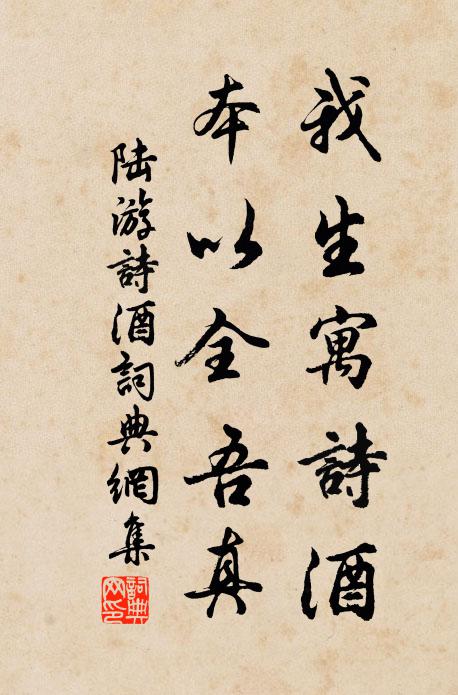 我生寓詩酒
本以全吾真
陸游詩酒詞典網集
詞典
网印